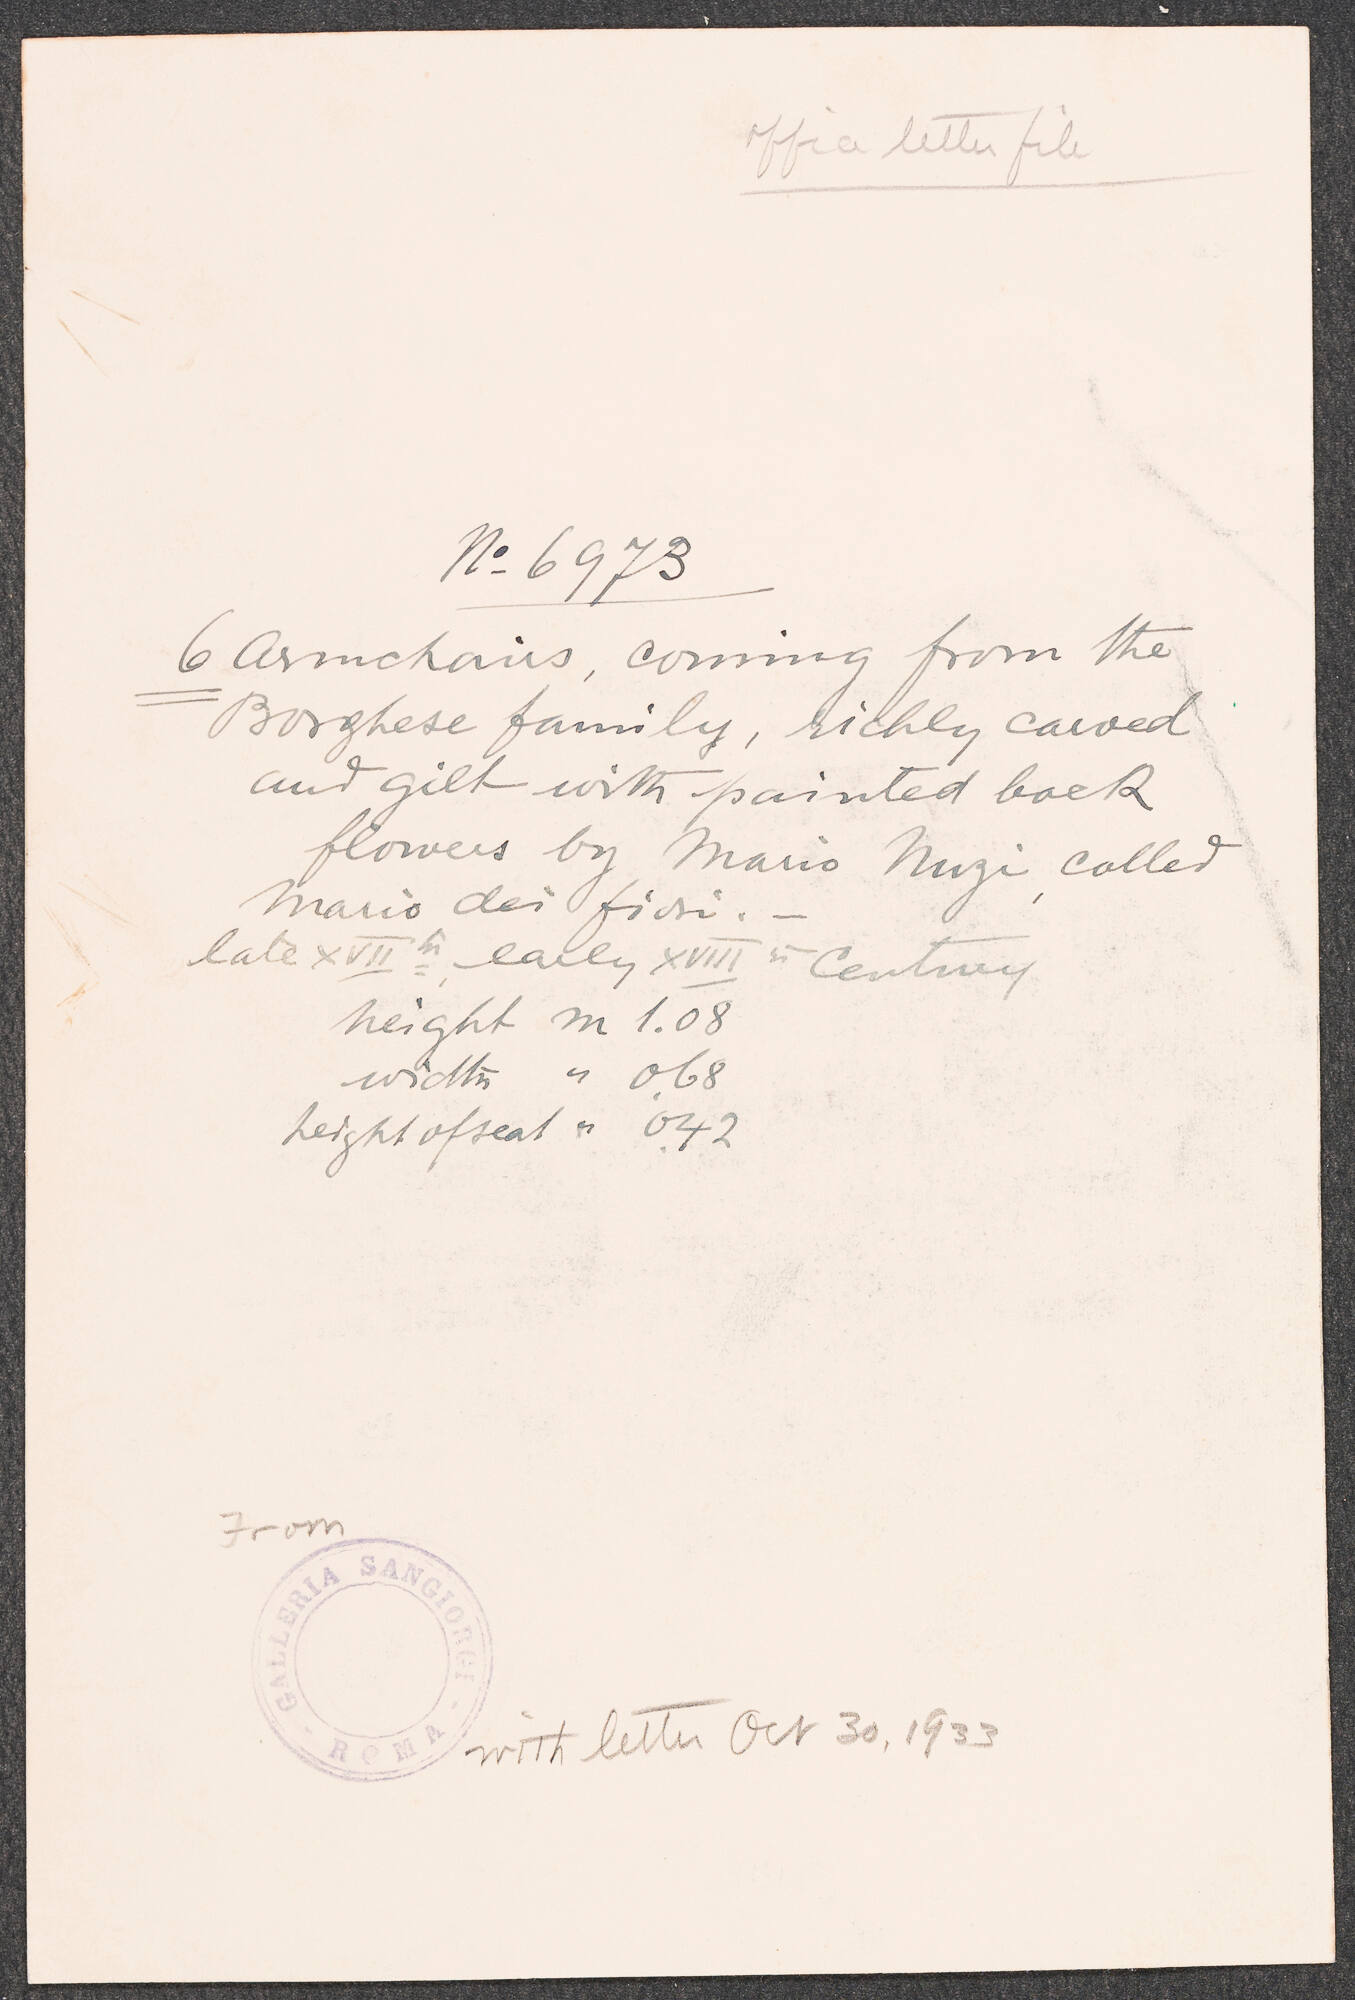 office letter file
No. 6973
6 Armchairs, coming from the
Borghese family, richly carved
and gilt with painted back
flowers by Mario Nuzi, called
Mario dei fiori. —
late XVIIth, early XVIIIth Century
height m 1.08
width " 0.68
height of seat " 0.42
From
GALLERIA SANGIORGI - ROMA -
with letter Oct 30, 1933